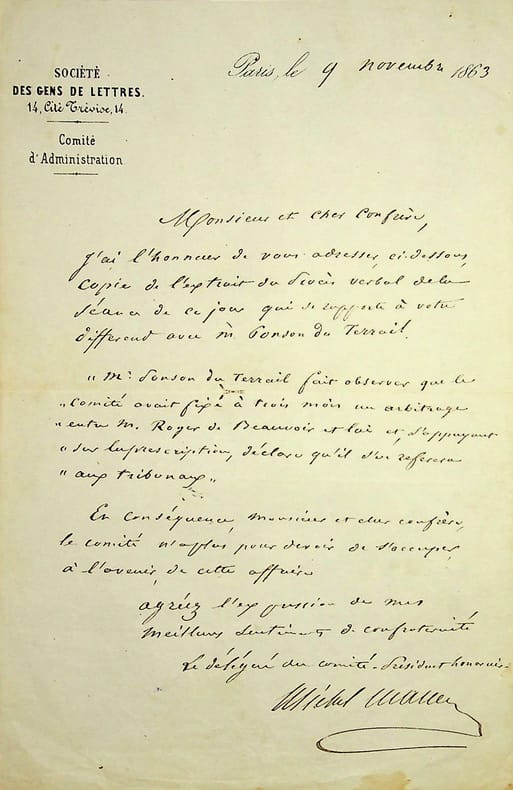 SOCIÉTÉ
DES GENS DE LETTRES.
14, Cité Trévise, 14.
Comité
d'Administration
Paris, le 9 novembre 1863
Monsieur et cher Confrère,
J'ai l'honneur de vous adresser, ci-dessous,
copie de l'extrait du procès verbal de la
séance de ce jour qui se rapporte à votre
différend avec M. Ponson du Terrail.
"M. Ponson du Terrail fait observer que le
"Comité avait fixé à trois mois un arbitrage
"entre M. Roger de Beauvoir et lui et, s'appuyant
"sur la prescription, déclare qu'il s'en referera
"aux tribunaux"
En conséquence, Monsieur et cher confrère,
le comité n'a plus pour devoir de s'occuper,
à l'avenir, de cette affaire
agréez l'expression de mes
meilleurs sentiments de confraternité
Le délégué du comité - Président honoraire -
Michel Masson